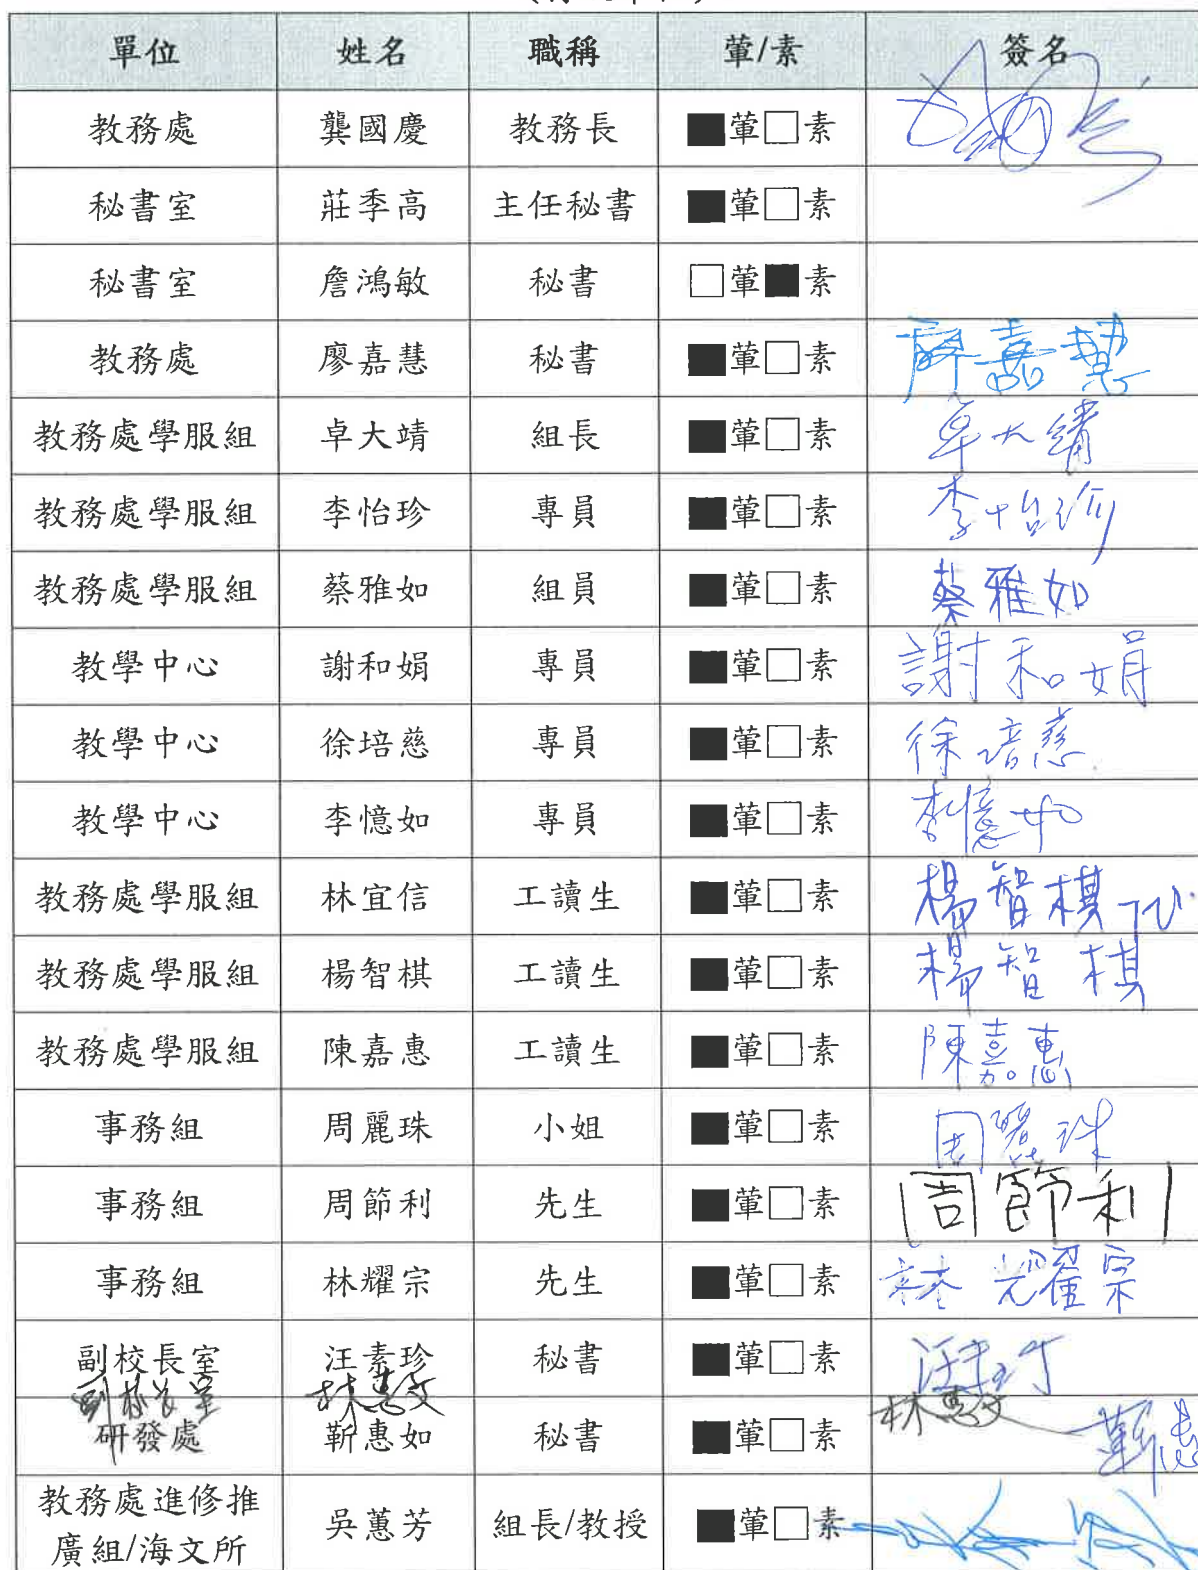 單位 姓名 職稱 葷/素 簽名
教務處 龔國慶 教務長 ■葷□素
秘書室 莊季高 主任秘書 ■葷□素
秘書室 詹鴻敏 秘書 □葷■素
教務處 廖嘉慧 秘書 ■葷□素 廖嘉慧
教務處學服組 卓大靖 組長 ■葷□素 卓大靖
教務處學服組 李怡珍 專員 ■葷□素 李怡珍
教務處學服組 蔡雅如 組員 ■葷□素 蔡雅如
教學中心 謝和娟 專員 ■葷□素 謝和娟
教學中心 徐培慈 專員 ■葷□素 徐培慈
教學中心 李憶如 專員 ■葷□素 李憶如
教務處學服組 林宜信 工讀生 ■葷□素 楊智棋
教務處學服組 楊智棋 工讀生 ■葷□素 楊智棋
教務處學服組 陳嘉惠 工讀生 ■葷□素 陳嘉惠
事務組 周麗珠 小姐 ■葷□素 周麗珠
事務組 周節利 先生 ■葷□素 周節利
事務組 林耀宗 先生 ■葷□素 林耀宗
副校長室 汪素珍 秘書 ■葷□素 汪素珍
副校長室 林惠文 林惠文
研發處 靳惠如 秘書 ■葷□素 靳惠
教務處進修推
廣組/海文所 吳蕙芳 組長/教授 ■葷□素